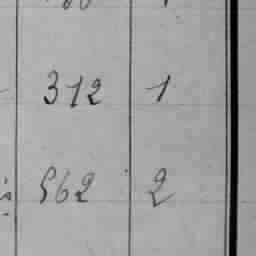 312 1
562 2